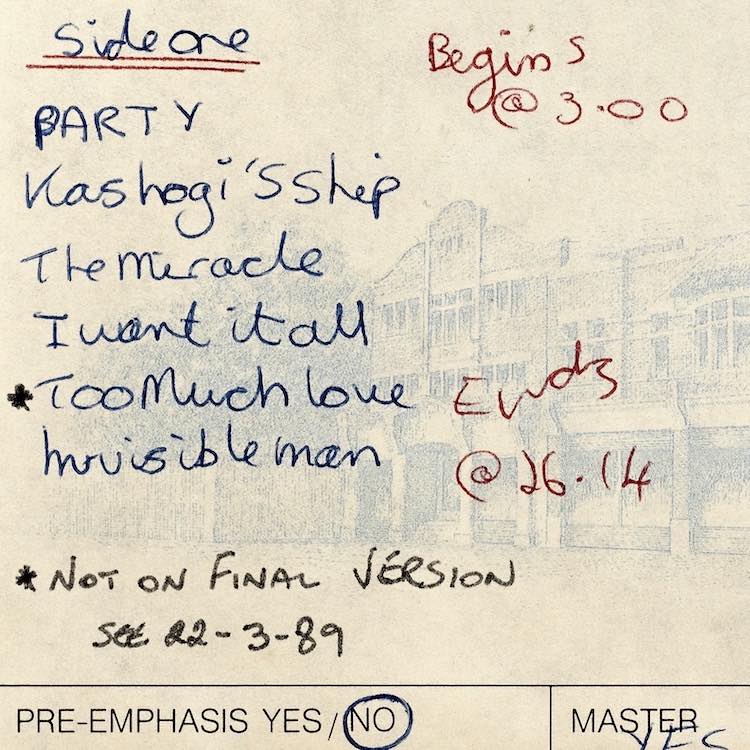 Side one
Begins
@ 3.00
PARTY
Kashogi'S Ship
The Miracle
I want it all
* Too Much love
Ends
Invisible man
@ 26.14
* NOT ON FINAL VERSION
SEE 22-3-89
PRE-EMPHASIS YES/NO
MASTER
YES